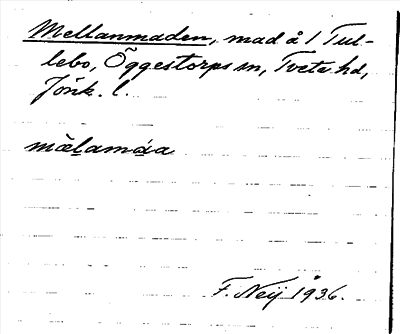 Mellanmaden, mad å 1 Tul-
lebo, Öggestorps sn, Tveta hd,
Jönk. l.
mælamáa
F. Neij 1936.